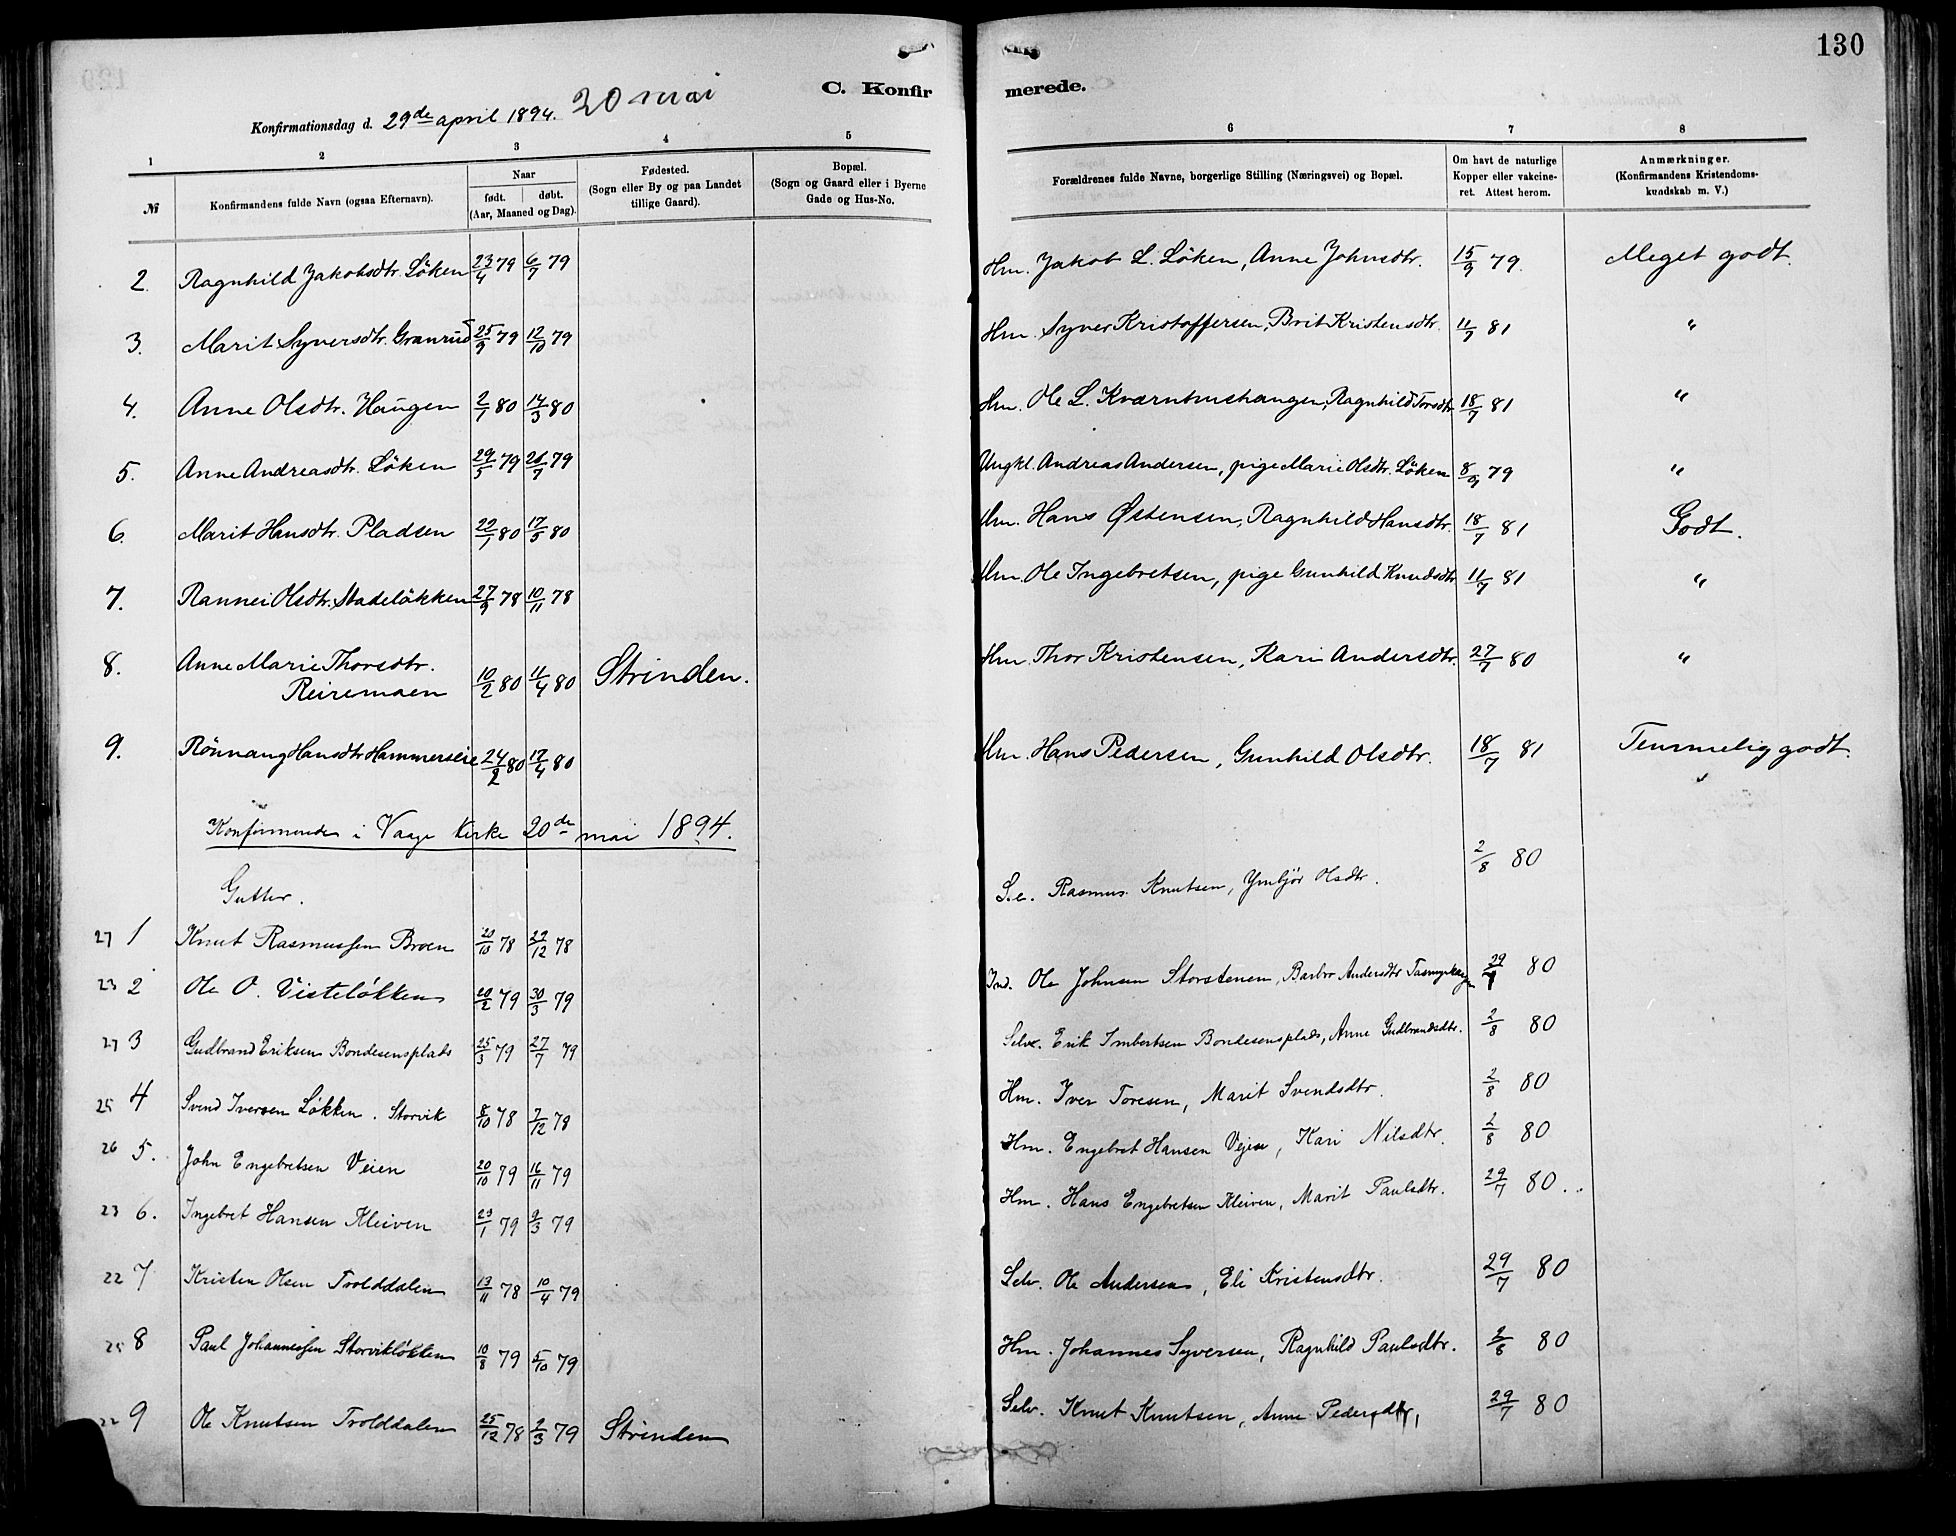 130
C. Konfir merede.
Konfirmationsdag d. 29de april 1894. 20 mai
1 2 3 4 5 6 7 8
№
Konfirmandens fulde Navn (ogsaa Efternavn).
Naar
født. døbt.
(Aar, Maaned og Dag).
Fødested.
(Sogn eller By og paa Landet
tillige Gaard).
Bopæl.
(Sogn og Gaard eller i Byerne
Gade og Hus-No.
Forældrenes fulde Navne, borgerlige Stilling (Næringsvei) og Bopæl.
Om havt de naturlige
Kopper eller vakcine-
ret. Attest herom.
Anmærkninger.
(Konfirmandens Kristendoms-
kundskab m. V.)
2. Ragnhild Jakobsdtr. Löken 23/4 79 6/7 79 Hm. Jakob L. Löken, Anne Johnsdtr. 15/9 79. Meget godt.
3. Marit Syversdtr. Granrud 25/9 79 12/10 79 Hm. Syver Kristoffersen, Brit Kristensdtr. 11/7 81 "
4. Anne Olsdtr. Haugen 2/1 80 14/3 80 Hm. Ole L. Kværnbrushaugen, Ragnhild Torsdtr 18/7 81 "
5. Anne Andreasdtr. Löken 29/5 79 26/7 79 Ungkl. Andreas Andersen, pige Marie Olsdtr. Löken 8/9 79 "
6. Marit Hansdtr. Pladsen 22/1 80 17/5 80 Hm. Hans Østensen, Ragnhild Hansdtr. 18/7 81 Godt.
7. Rannei Olsdtr. Stadelökken 27/9 78 10/11 78 Hm. Ole Ingebretsen, pige Gunhild Knudsdtr 11/7 81 "
8. Anne Marie Thorsdtr.
Reiremoen 10/2 80 11/4 80 Strinden. Hm. Thor Kristensen, Kari Andersdtr. 27/7 80 "
9. Rönnaug Hansdtr Hammerseie 24/2 80 17/4 80 Hm. Hans Pedersen, Gunhild Olsdtr. 18/7 81 Temmelig godt.
Konfirmerede i Vaage kirke 20de mai 1894.
Gutter.
27 1 Knut Rasmussen Broen 20/10 78 22/12 78 S.e. Rasmus Knutsen, Ymbjör Olsdtr. 2/8 80
23 2 Ole O. Visteløkken 20/2 79 30/3 79 Ind. Ole Johnsen Storstenen, Barbro Andersdtr 29/7 80
27 3 Gudbrand Eriksen Bondesensplads 25/3 79 27/7 79 Selve. Erik Imbertsen Bondesensplads, Anne Gudbrandsdtr. 2/8 80
25 4 Svend Iversen Løkken. Storvik 8/10 78 7/12 78 Hm. Iver Toresen, Marit Svendsdtr. 2/8 80
26 5. John Engebretsen Veien 20/10 79 16/11 79 Hm. Engebret Hansen Vejen, Kari Nilsdtr. 2/8 80
23 6. Ingebret Hansen Kleiven 23/1 79 9/3 79 Hm. Hans Engebretsen Kleiven, Marit Paulsdtr. 29/7 80
22 7 Kristen Olsen Trolddalen 13/11 78 10/4 79 Selv. Ole Andersen, Eli Kristensdtr. 29/7 80
25 8 Paul Johannessen Storvikløkken 10/8 79 5/10 79 Hm. Johannes Syversen, Ragnhild Paulsdtr. 2/8 80
22 9 Ole Knutsen Trolddalen 25/12 78 2/3 79 Strinden Selv. Knut Knutsen, Anne Pedersdtr, 29/7 80